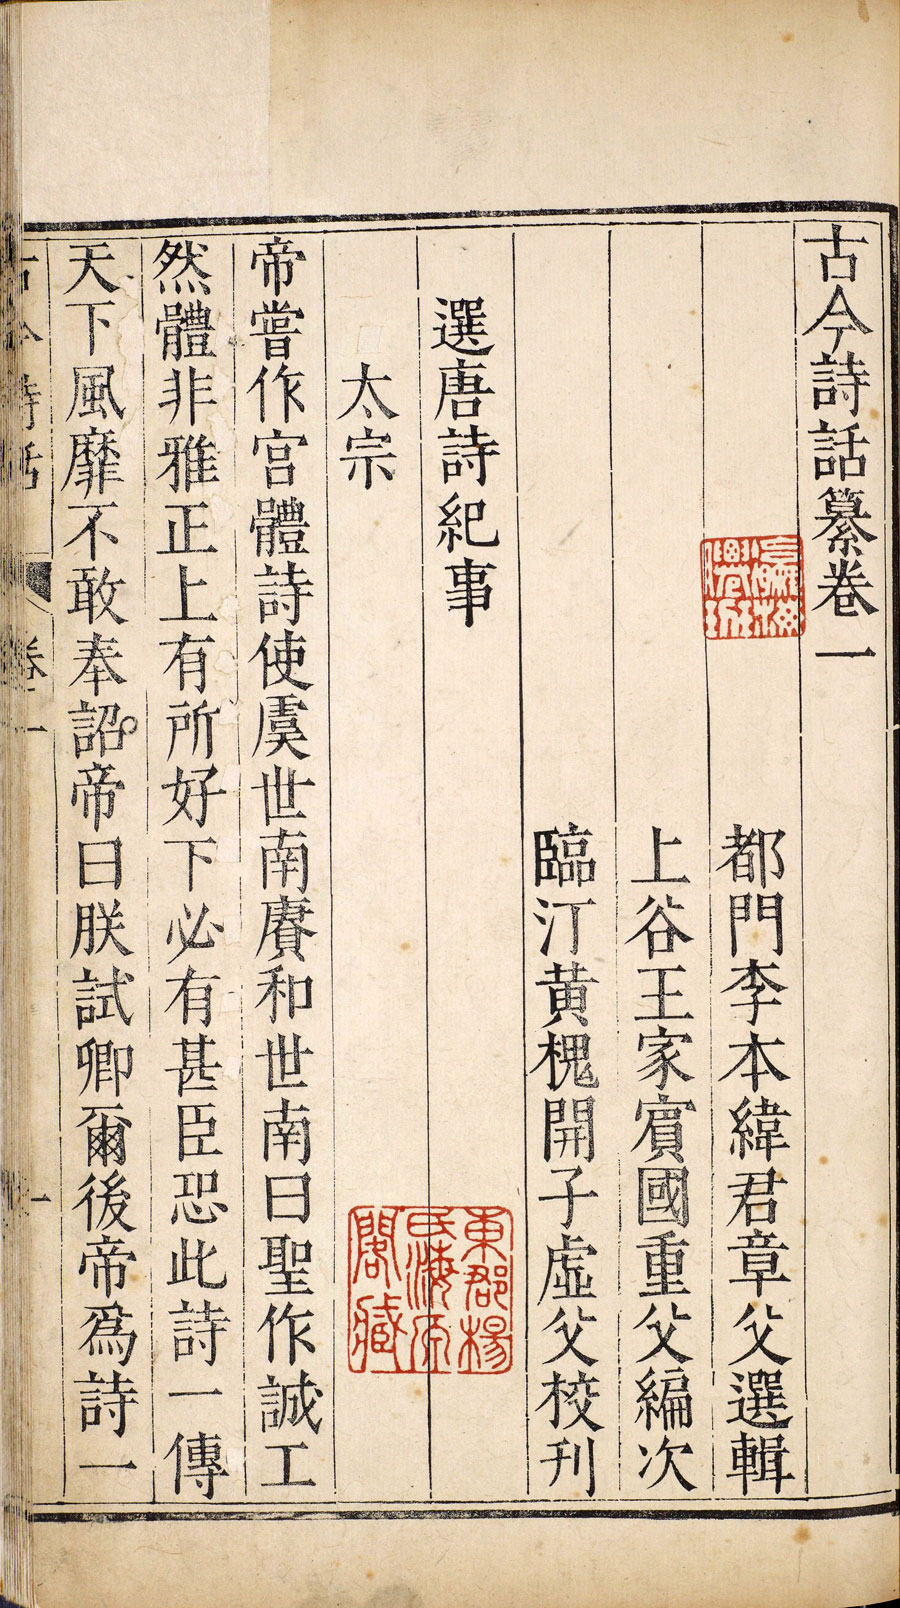 古今詩話纂卷一
都門李本緯君章父選輯
上谷王家賔國重父編次
臨汀黄槐開子虛父校刊
選唐詩紀事
太宗
帝嘗作宮體詩使虞世南賡和世南曰聖作誠工
然體非雅正上有所好下必有甚臣恐此詩一傳
天下風靡不敢奉詔帝曰朕試卿爾後帝爲詩一
古今詩話
卷一
一
東郡楊
氏海源
閣藏